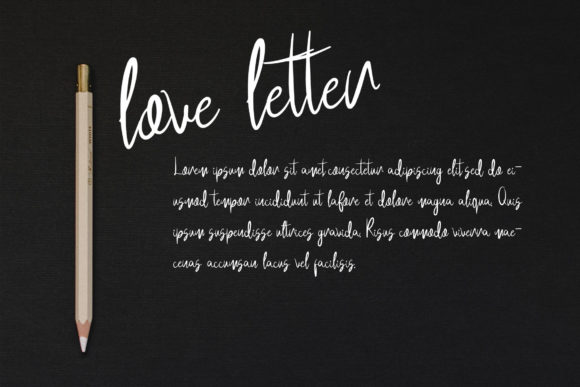 love letter
Lorem ipsum dolor sit amet consectetur adipiscing elit sed do ei-
usmod tempor incididunt ut labore et dolore magna aliqua. Quis
ipsum suspendisse ultrices gravida. Risus commodo viverra mae-
cenas accumsan lacus vel facilisis.